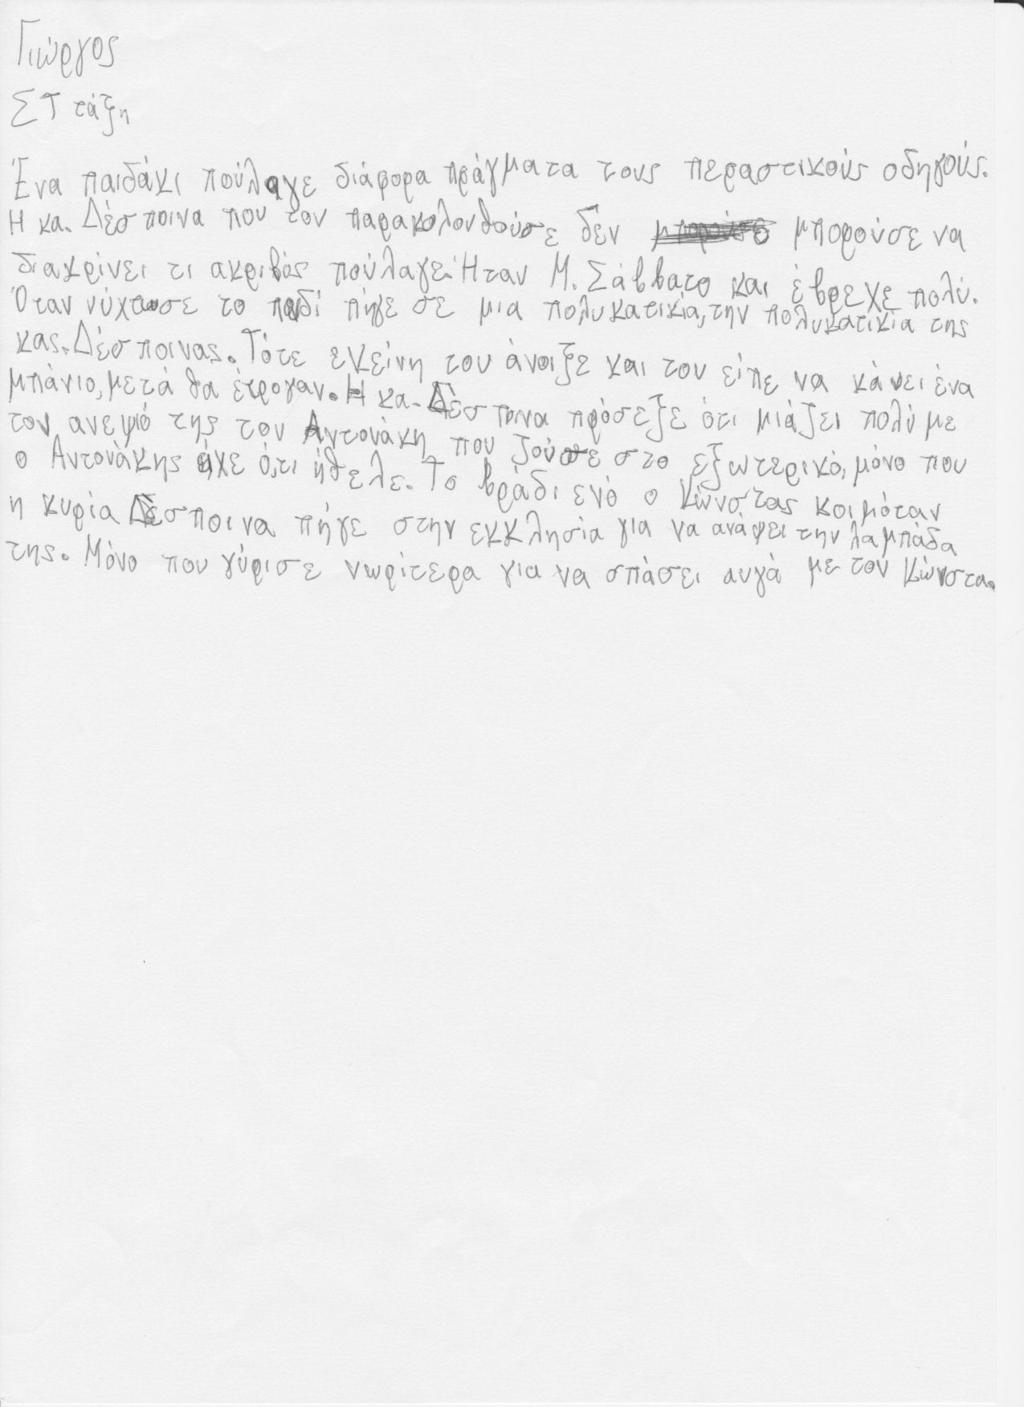 Γιώργος
ΣΤ τάξη
Ένα παιδάκι πούλαγε διάφορα πράγματα τους περαστικούς οδηγούς.
Η κα. Δέσποινα που τον παρακολουθούσε δεν μπορούσε να
διακρίνει τι ακριβός πούλαγε. Ήταν Μ. Σάββατο και έβρεχε πολύ.
Όταν νύχτωσε το παιδί πήγε σε μια πολυκατικία, την πολυκατικία της
κας. Δέσποινας. Τότε εκείνη του άνοιξε και του είπε να κάνει ένα
μπάνιο, μετά θα έτρογαν. Η κα. Δέσποινα πρόσεξε ότι μιάζει πολύ με
τον ανεψιό της τον Αντονάκη που ζούσε στο εξωτερικό, μόνο που
ο Αντονάκης είχε ό,τι ήθελε. Το βράδι ενό ο Κώνστας κοιμόταν
η κυρία Δέσποινα πήγε στην εκκλησία για να ανάψει την λαμπάδα
της. Μόνο που γύρισε νωρίτερα για να σπάσει αυγά με τον Κώνστα.